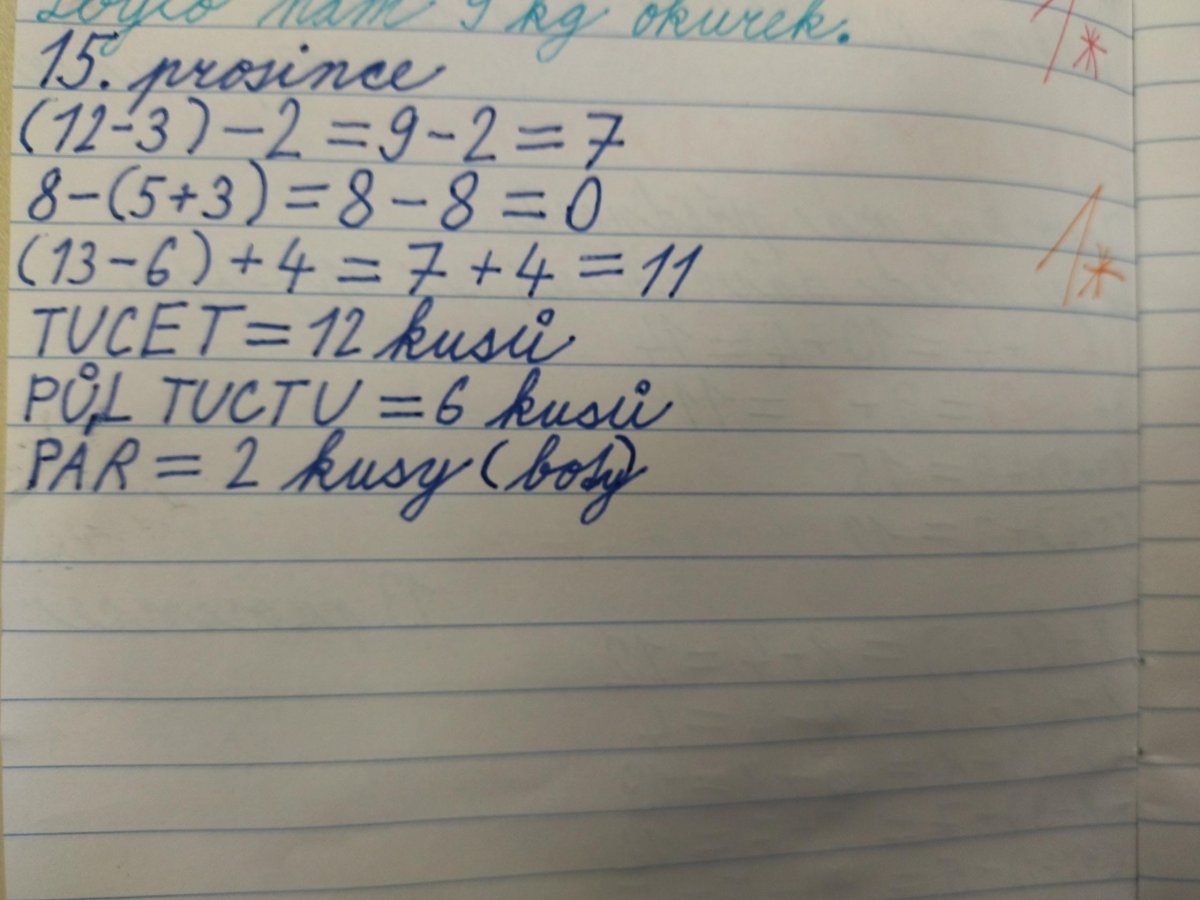 Zbylo nám 9 kg okurek.
1*
15. prosince
(12-3)-2=9-2=7
8-(5+3)=8-8=0
(13-6)+4=7+4=11
1*
TUCET=12 kusů
PŮL TUCTU=6 kusů
PÁR=2 kusy (boty)